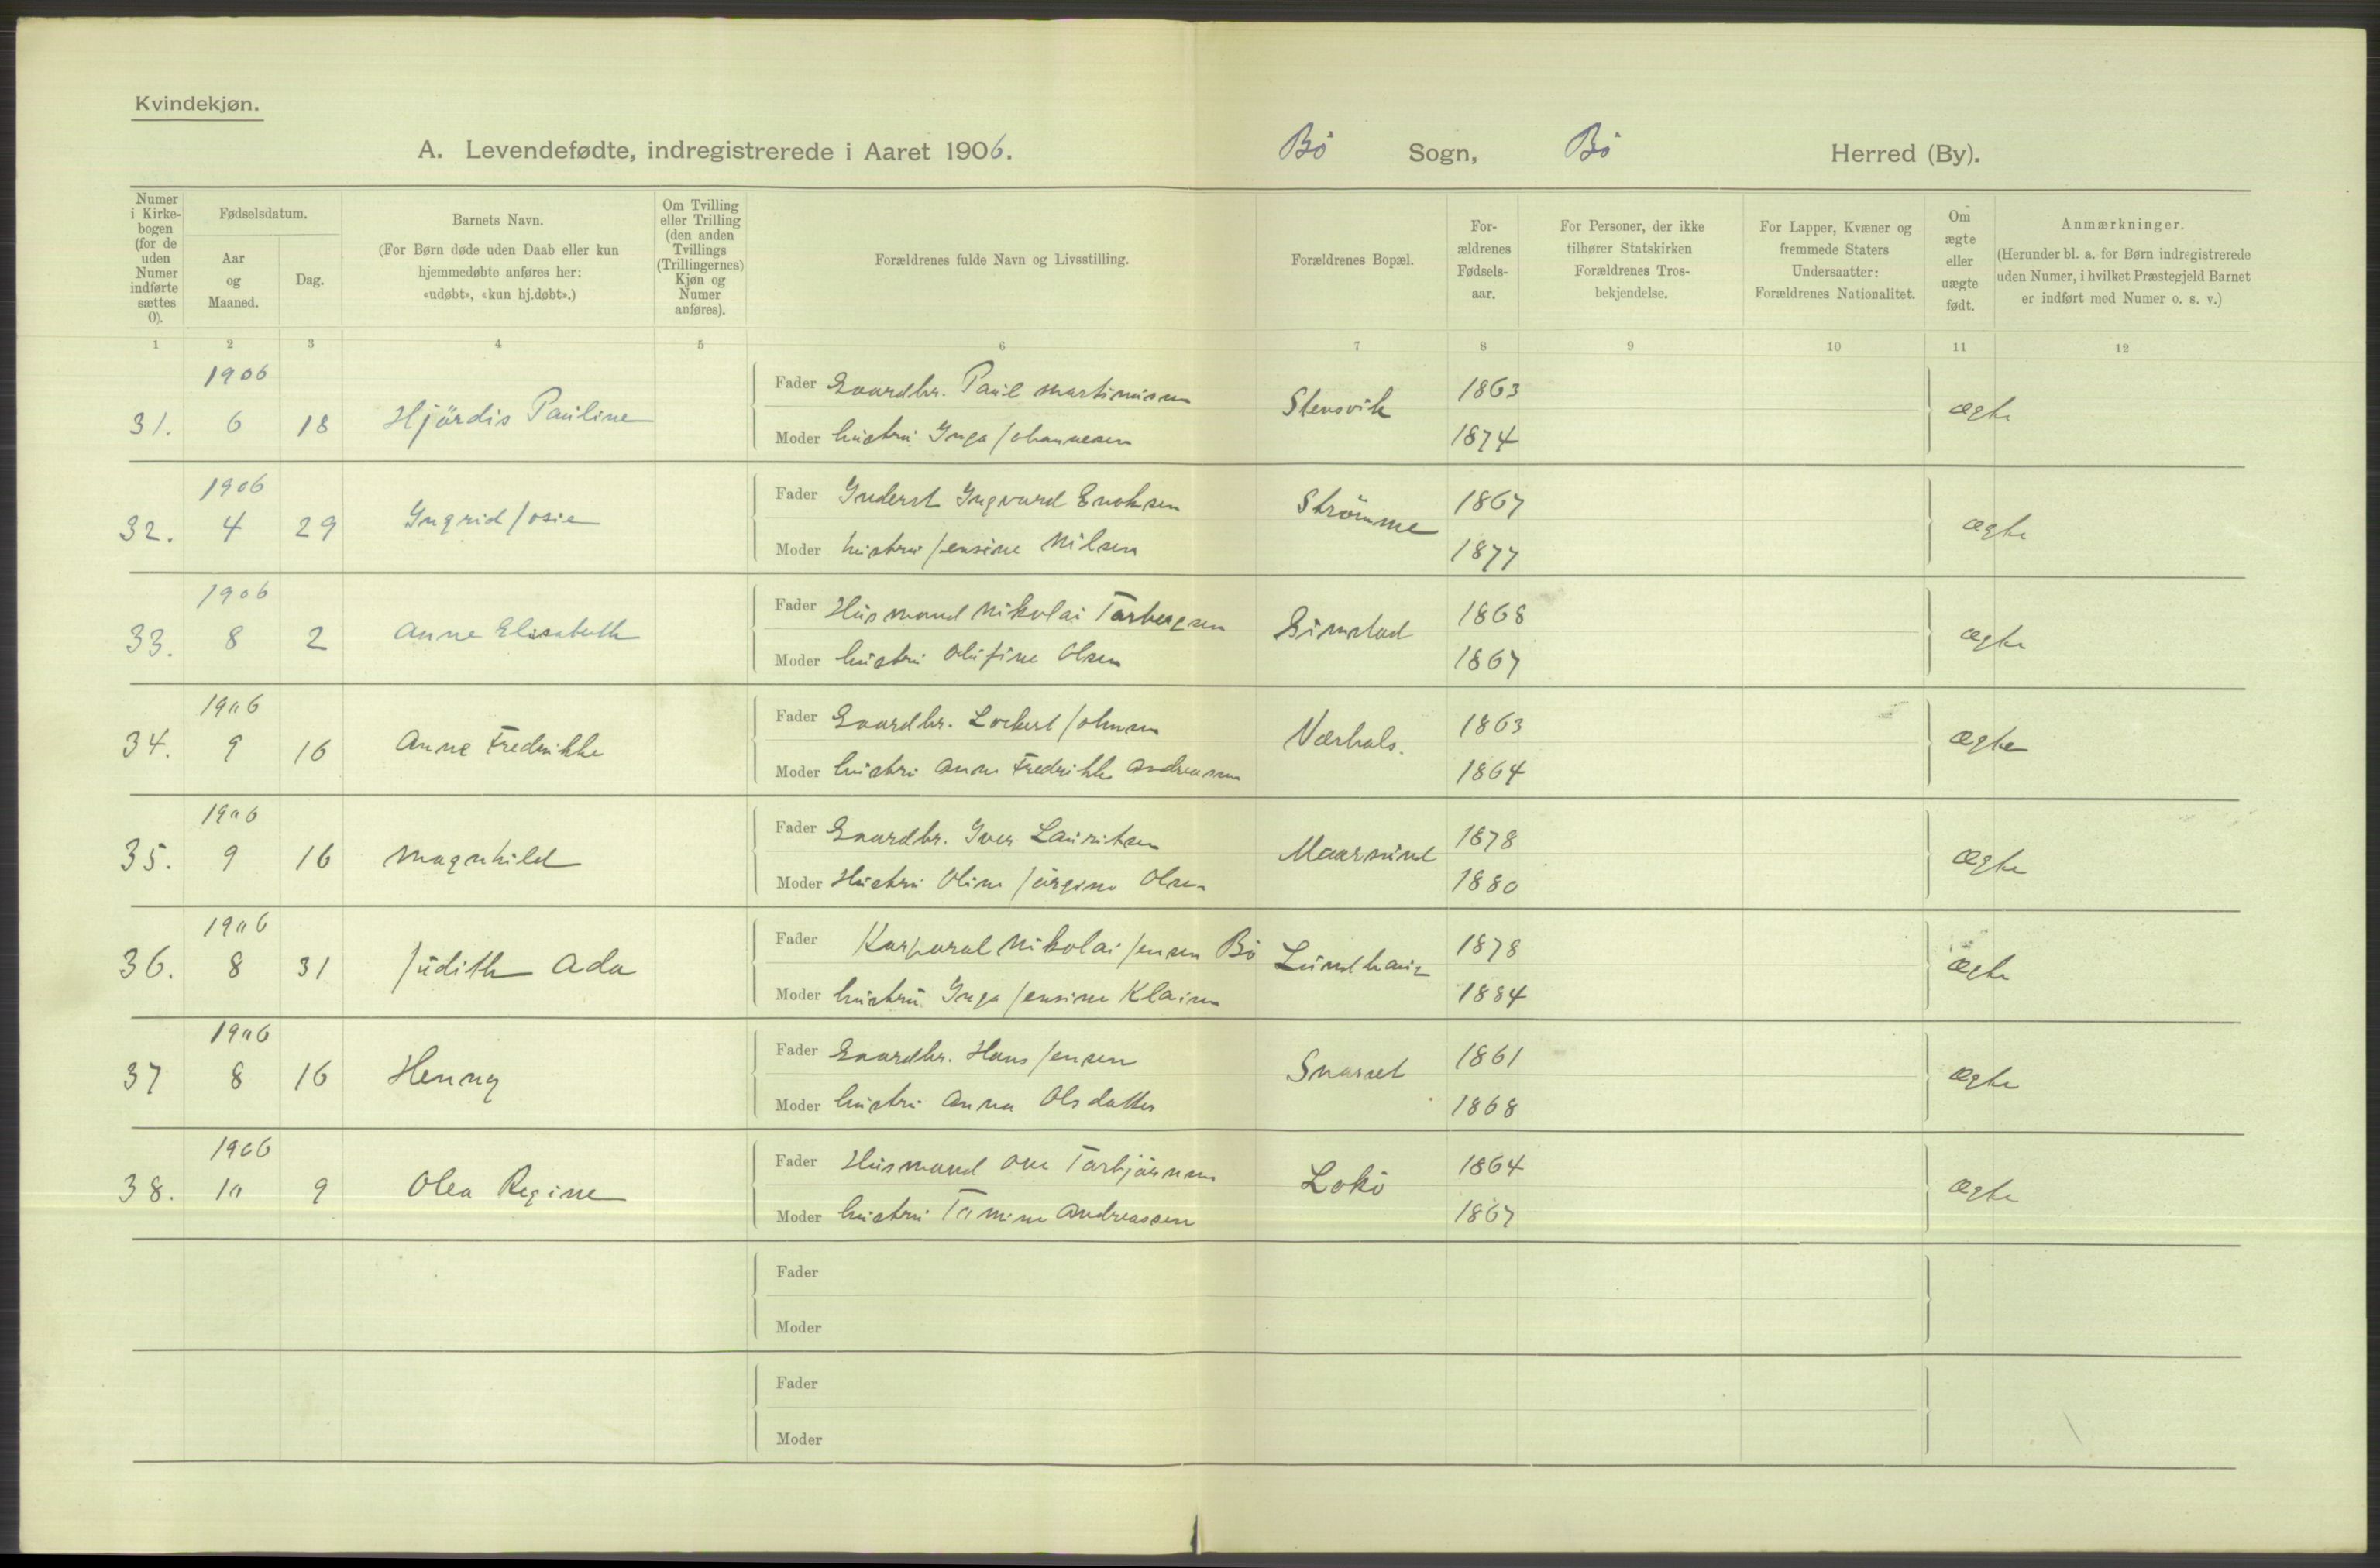 Kvindekjøn.
A. Levendefødte, indregistrerede i Aaret 1906. Bö Sogn, Bö Herred (By).
Numer i Kirke-bogen (for de uden Numer indførte sættes 0).
Fødselsdatum.
Aar og Maaned.
Dag.
Barnets Navn.
(For Børn døde uden Daab eller kun
hjemmedøbte anføres her:
«udøbt», «kun hj.døbt».)
Om Tvilling
eller Trilling
(den anden
Tvillings
(Trillingernes)
Kjøn og
Numer
anføres).
Forældrenes fulde Navn og Livsstilling.
Forældrenes Bopæl.
For-
ældrenes
Fødsels-
aar.
For Personer, der ikke
tilhører Statskirken
Forældrenes Tros-
bekjendelse.
For Lapper, Kvæner og
fremmede Staters
Undersaatter:
Forældrenes Nationalitet.
Om
ægte
eller
uægte
født.
Anmærkninger.
(Herunder bl. a. for Børn indregistrerede
uden Numer, i hvilket Præstegjeld Barnet
er indført med Numer o. s. v.)
1 2 3 4 5 6 7 8 9 10 11 12
1906
31. 6 18 Hjördis Pauline
Fader Gaardbr. Paul Martinussen Stensvik 1863 ægte
Moder hustru Inga Johannesen 1874
1906
32. 4 29 Ingrid Josie
Fader Inderst Ingvard Enoksen Strömme 1867 ægte
Moder hustru Jensine Nilsen 1877
1906
33. 8 2 Anne Elisabeth
Fader Husmand Nikolai Torbergsen Gimstad 1868 ægte
Moder hustru Olufine Olsen 1867
1906
34. 9 16 Anne Fredrikke
Fader Gaardbr. Lockert Johnsen 1863 ægte
Moder hustru Anne Fredrikke Andreassen 1864
1906
35. 9 16 Magnhild
Fader Gaardbr. Iver Lauritsen Maarsund 1878 ægte
Moder Hustru Oline Jörgine Olsen 1880
1906
36. 8 31 Judith Ada
Fader Korporal Nikolai Jensen Bö 1878 ægte
Moder hustru Inga Jensine 1884
1906
37 8 16 Henny
Fader Gaardbr. Hans Jensen Snarset 1861 ægte
Moder hustru Anna Olsdatter 1868
1906
38. 10 9 Olea Regine
Fader Husmand Ove Torbjörnsen Lokö 1864 ægte
Moder hustru Tomine Andreassen 1867
Fader
Moder
Fader
Moder